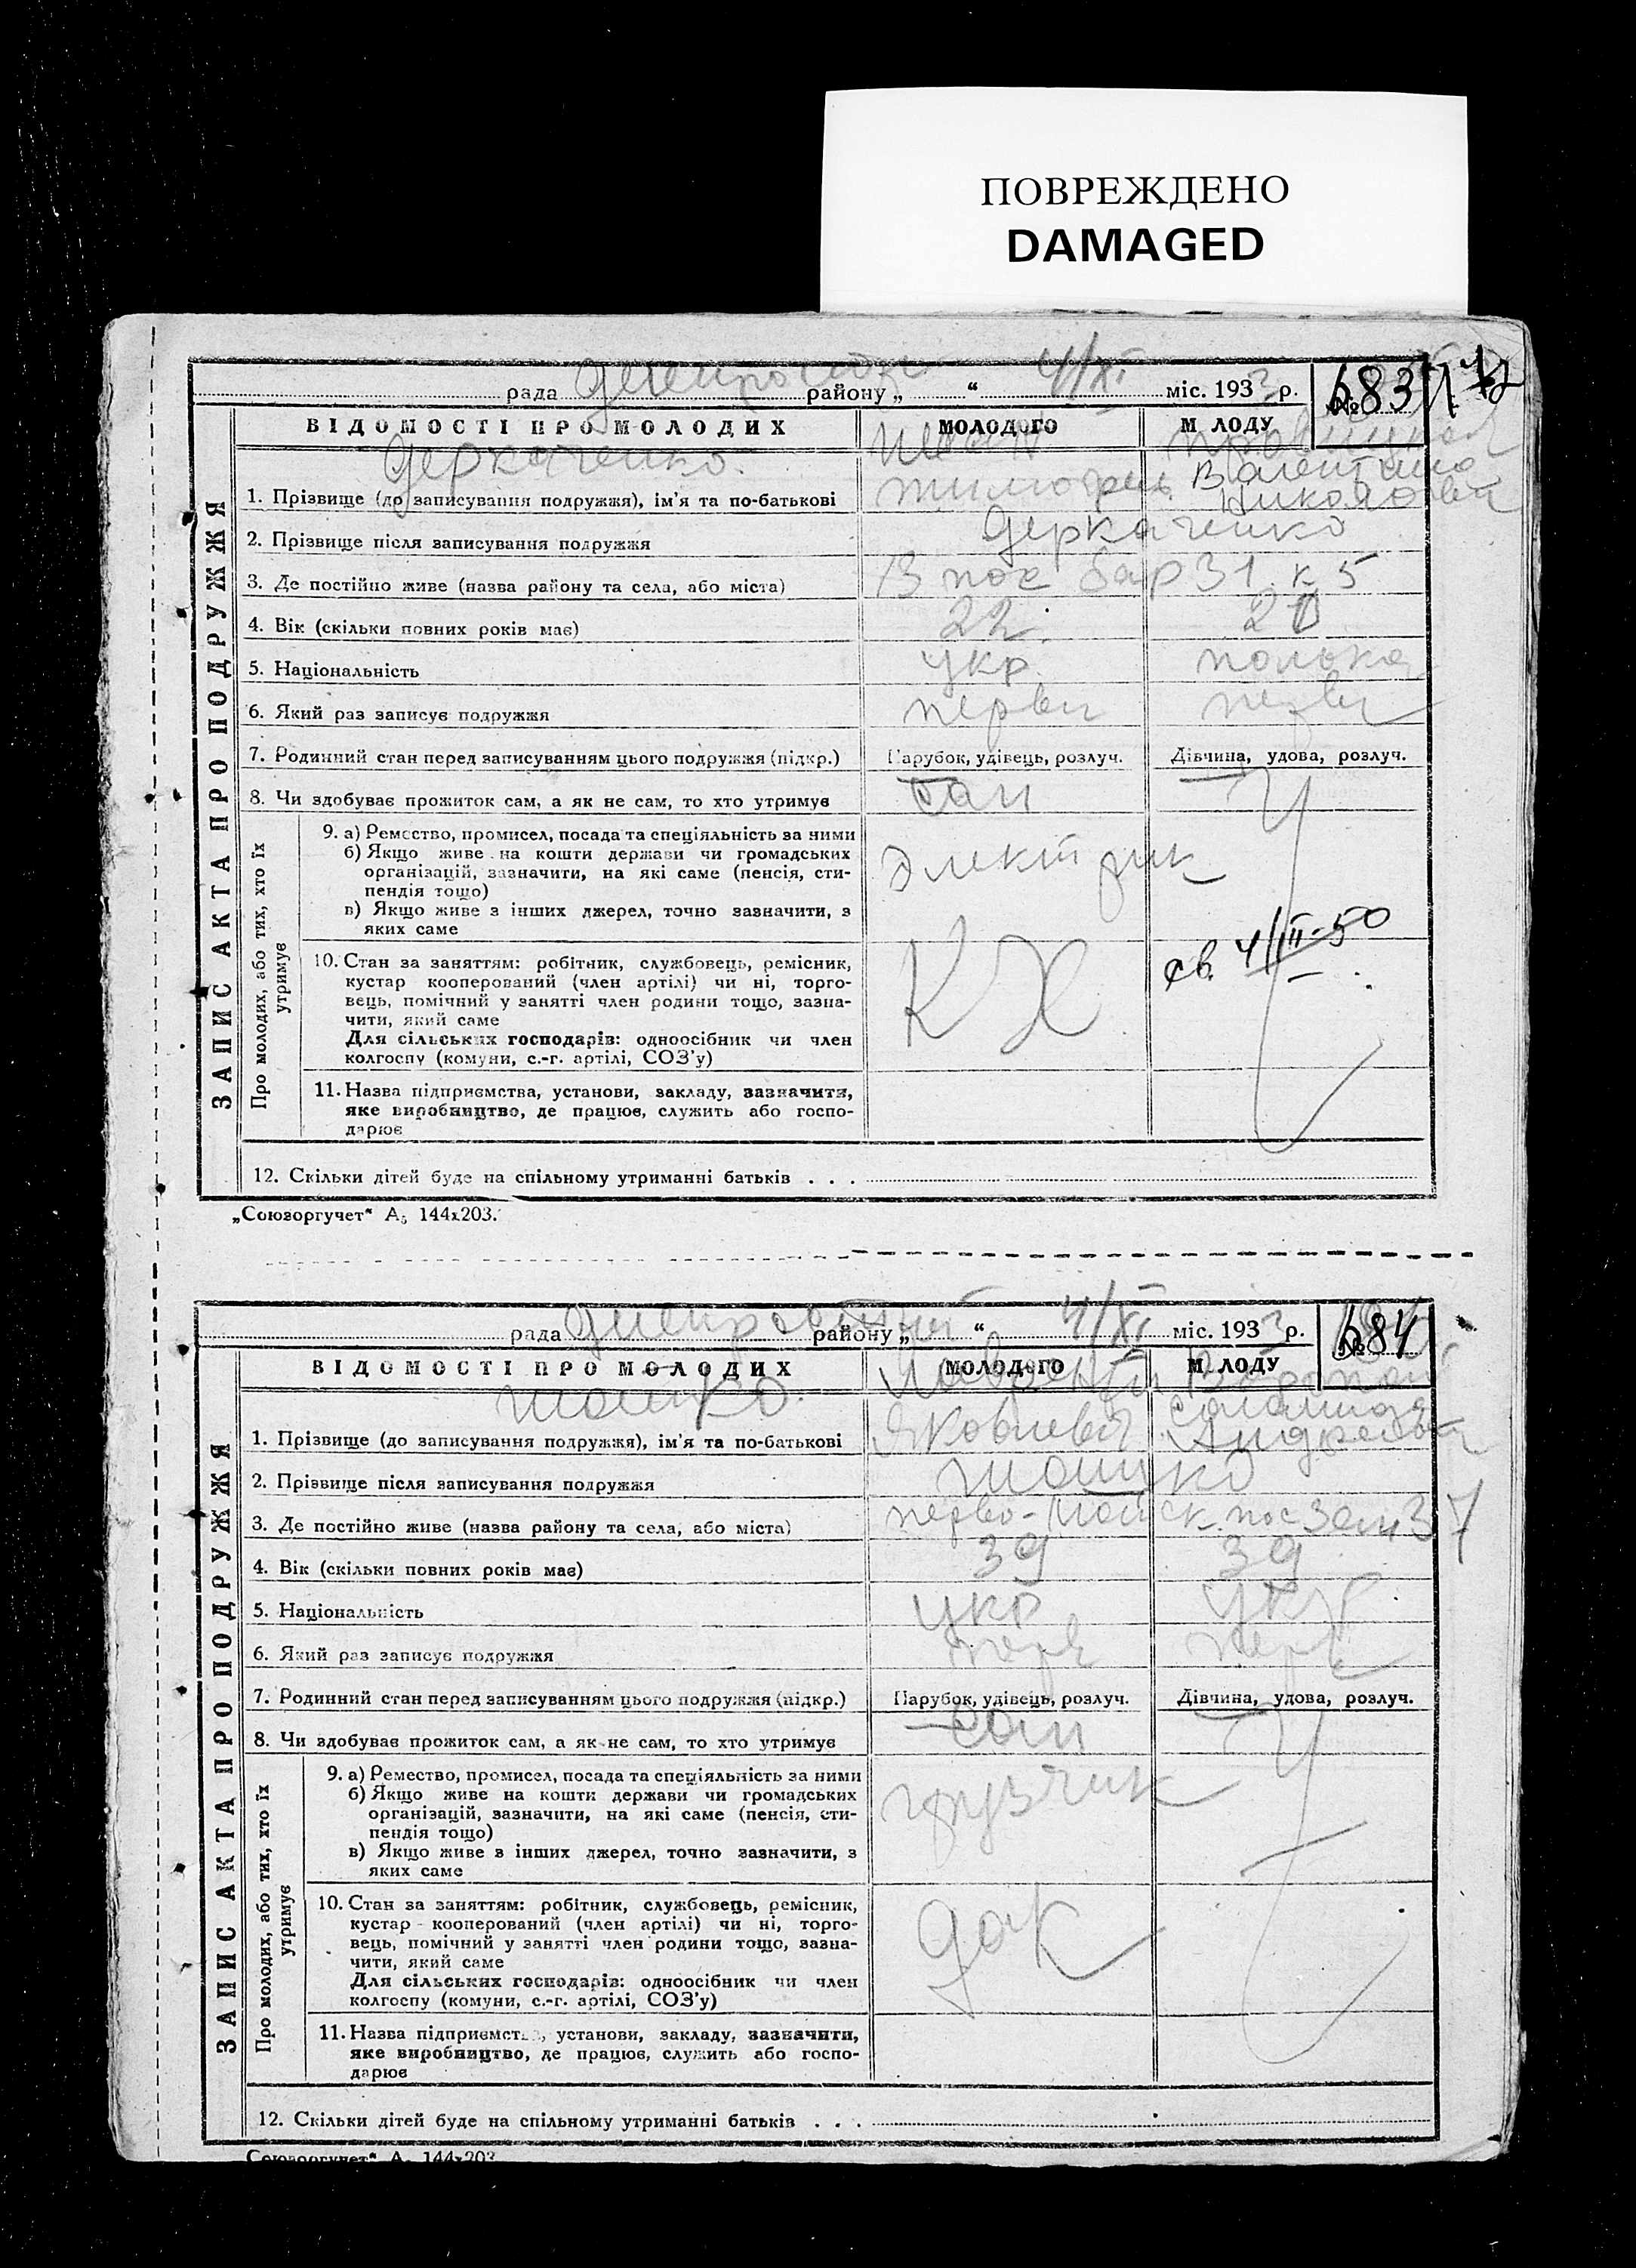 ПОВРЕЖДЕНО
DAMAGED
рада району „ “ 4/XI міс. 1933 р. № 683
ВІДОМОСТІ ПРО МОЛОДИХ МОЛОДОГО М ЛОДУ
Деркаченко Иван
1. Прізвище (до записування подружжя), ім'я та по-батькові Тимофеев. Валентина Николаевн
2. Прізвище після записування подружжя Деркаченко
3. Де постійно живе (назва району та села, або міста) пос бар 31 к 5
4. Вік (скільки повних років має) 22 20
5. Національність укр полька
6. Який раз записує подружжя перви перви
7. Родинний стан перед записуванням цього подружжя (підкр.) Парубок, удівець, розлуч. Дівчина, удова, розлуч.
8. Чи здобуває прожиток сам, а як не сам, то хто утримує сам
ЗАПИС АКТА ПРО ПОДРУЖЖЯ
Про молодих, або тих, хто їх утримує
9. а) Ремество, промисел, посада та спеціяльність за ними
б) Якщо живе на кошти держави чи громадських
організацій, зазначити, на які саме (пенсія, сти-
пендія тощо)
електрик
в) Якщо живе з інших джерел, точно зазначити, з
яких саме
св. 4/III-50
10. Стан за заняттям: робітник, службовець, ремісник,
кустар кооперований (член артілі) чи ні, торго-
вець, помічний у занятті член родини тощо, зазна-
чити, який саме
КХ
Для сільських господарів: одноосібник чи член
колгоспу (комуни, с.-г. артілі, СОЗ'у)
11. Назва підприємства, установи, закладу, зазначити,
яке виробництво, де працює, служить або госпо-
дарює
12. Скільки дітей буде на спільному утриманні батьків . . .
„Союзоргучет“ А₅ 144х203.
рада району „ “ 4/XI міс. 1933 р. № 684
ВІДОМОСТІ ПРО МОЛОДИХ МОЛОДОГО М ЛОДУ
1. Прізвище (до записування подружжя), ім'я та по-батькові Яковлевич Андреевна
2. Прізвище після записування подружжя
3. Де постійно живе (назва району та села, або міста) перво-майск. пос зем 37
4. Вік (скільки повних років має) 39 39
5. Національність укр укр
6. Який раз записує подружжя перв перв
7. Родинний стан перед записуванням цього подружжя (підкр.) Парубок, удівець, розлуч. Дівчина, удова, розлуч.
8. Чи здобуває прожиток сам, а як не сам, то хто утримує сам
ЗАПИС АКТА ПРО ПОДРУЖЖЯ
Про молодих, або тих, хто їх утримує
9. а) Ремество, промисел, посада та спеціяльність за ними
б) Якщо живе на кошти держави чи громадських
організацій, зазначити, на які саме (пенсія, сти-
пендія тощо)
грузчик
в) Якщо живе з інших джерел, точно зазначити, з
яких саме
10. Стан за заняттям: робітник, службовець, ремісник,
кустар кооперований (член артілі) чи ні, торго-
вець, помічний у занятті член родини тощо, зазна-
чити, який саме
Для сільських господарів: одноосібник чи член
колгоспу (комуни, с.-г. артілі, СОЗ'у)
11. Назва підприємства, установи, закладу, зазначити,
яке виробництво, де працює, служить або госпо-
дарює
12. Скільки дітей буде на спільному утриманні батьків . . .
Союзоргучет“ А₅ 144х203